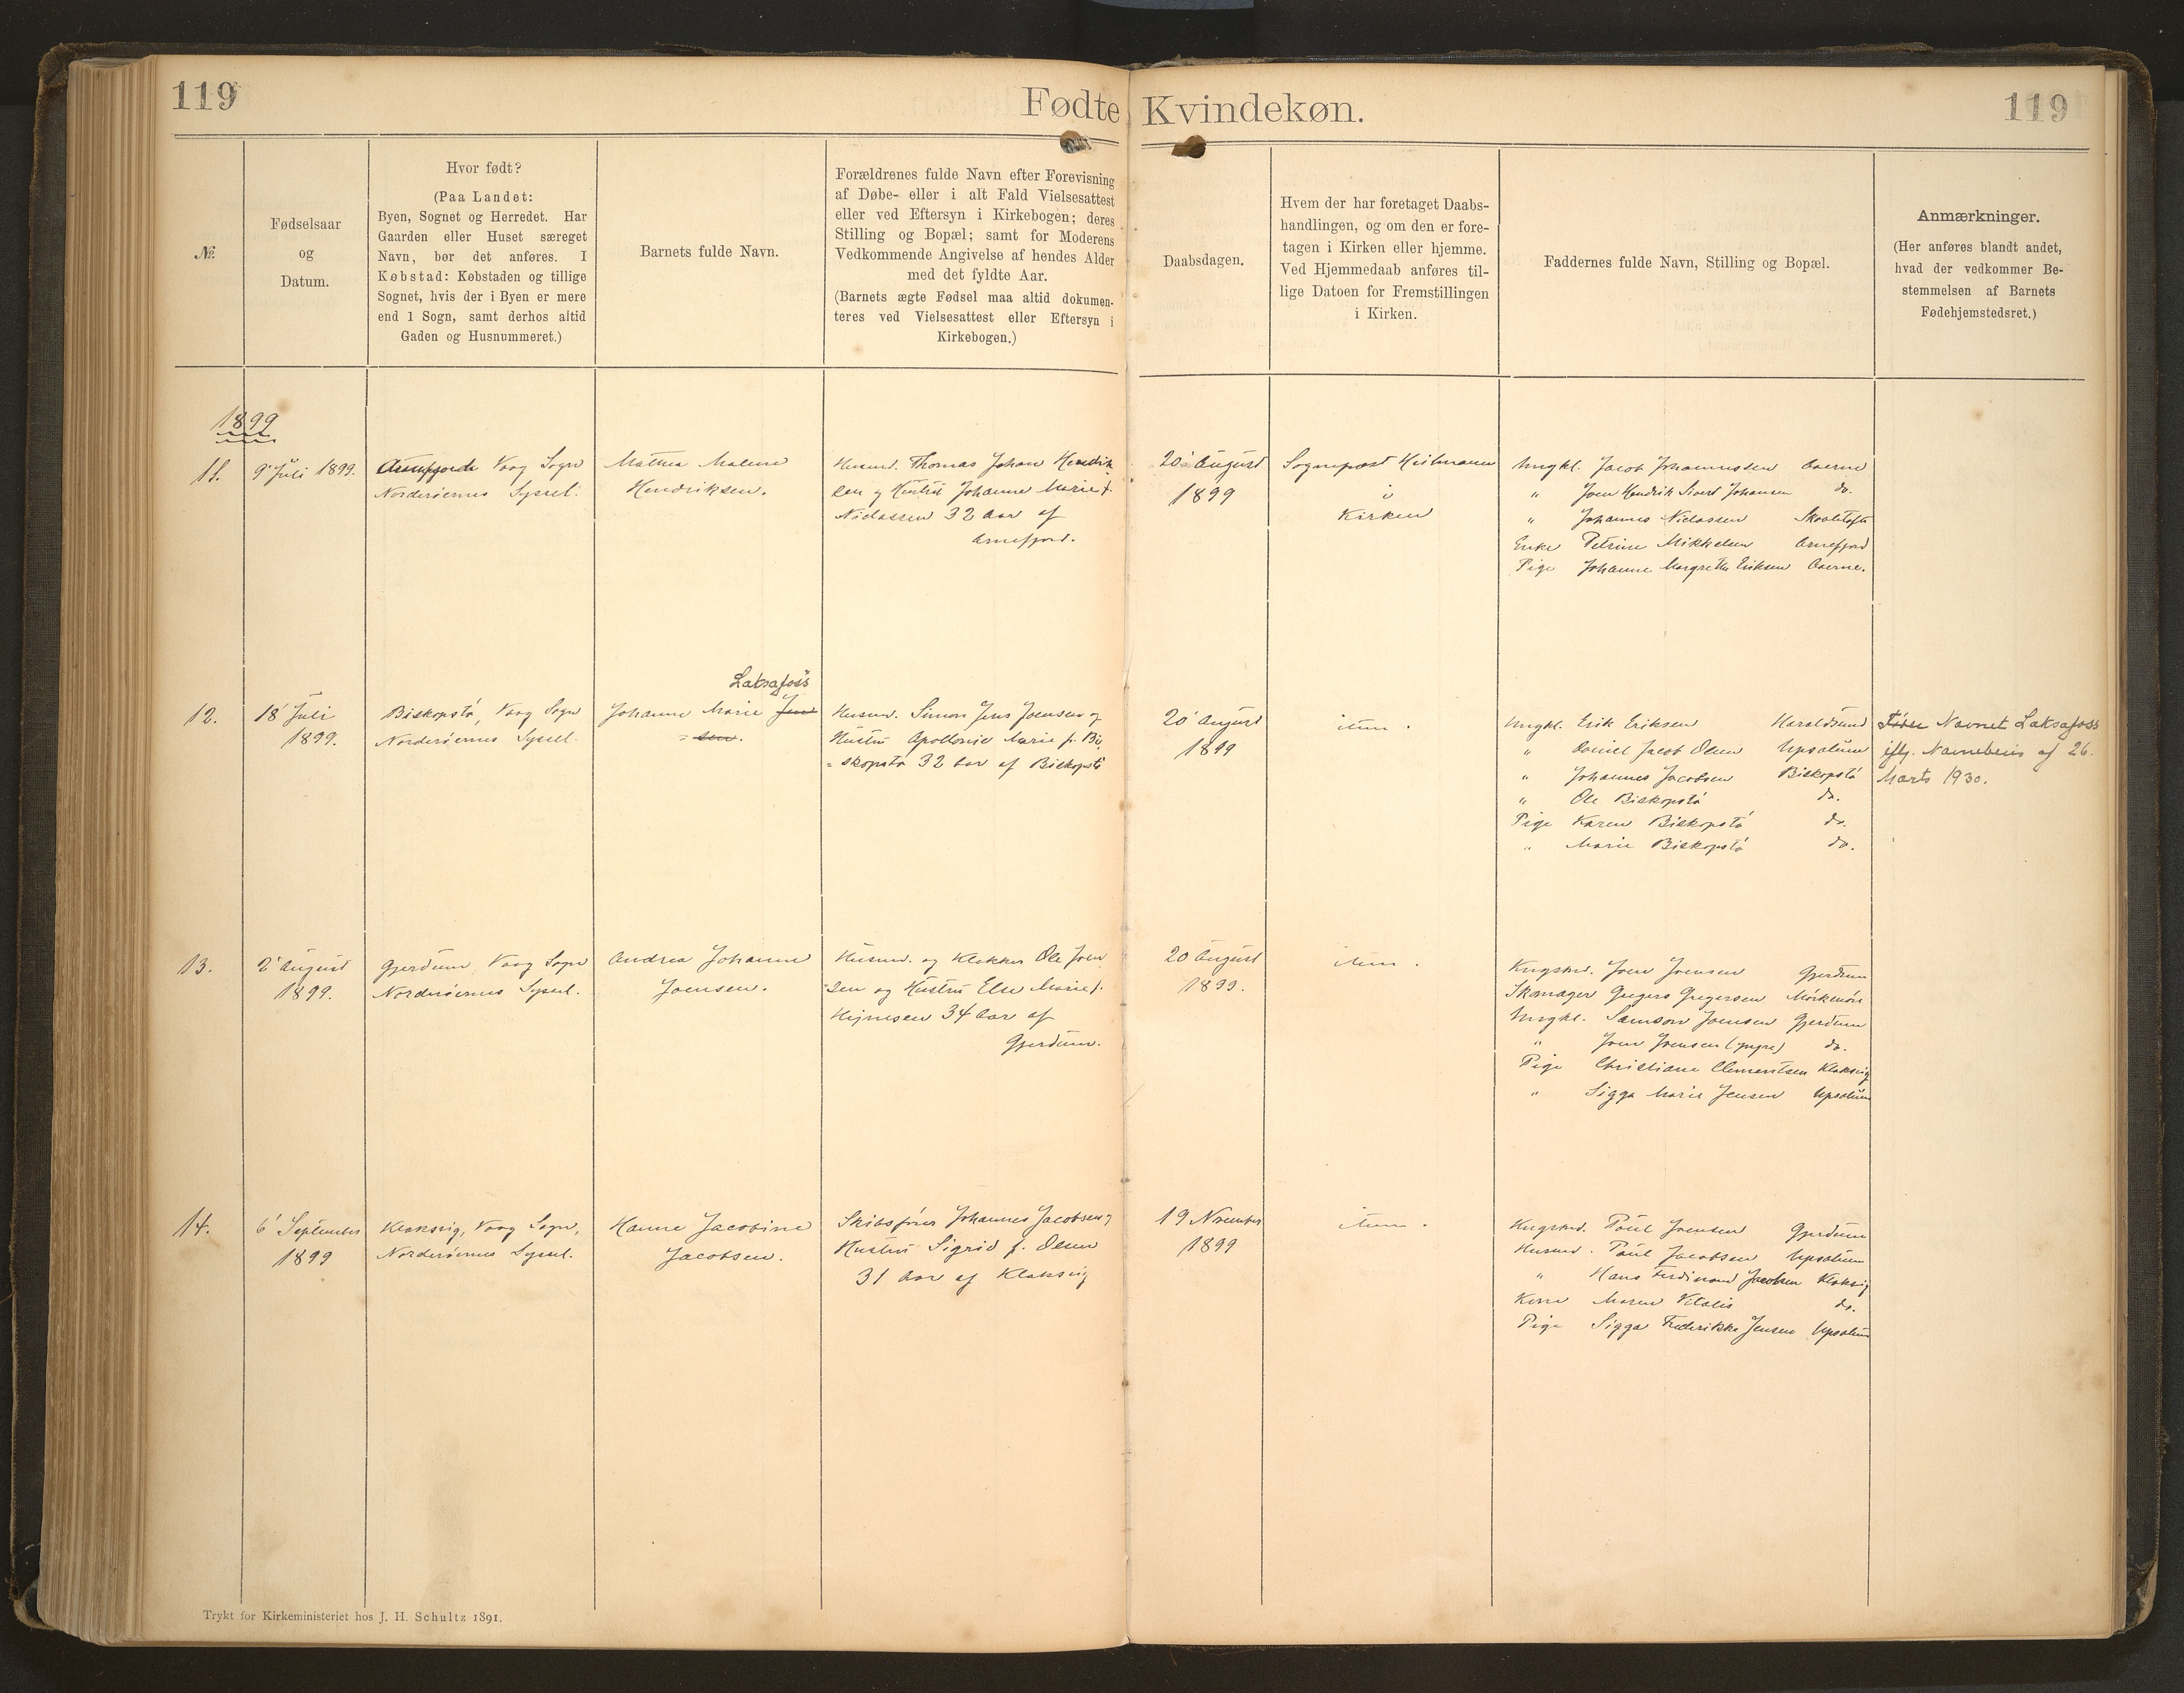 119
Fødte Kvindekøn.
119
№
Fødselsaar
og
Datum.
Hvor født?
(Paa Landet:
Byen, Sognet og Herredet. Har
Gaarden eller Huset særeget
Navn, bør det anføres. I
Købstad: Købstaden og tillige
Sognet, hvis der i Byen er mere
end 1 Sogn, samt derhos altid
Gaden og Husnummeret.)
Barnets fulde Navn.
Forældrenes fulde Navn efter Forevisning
af Døbe- eller i alt Fald Vielsesattest
eller ved Eftersyn i Kirkebogen; deres
Stilling og Bopæl; samt for Moderens
Vedkommende Angivelse af hendes Alder
med det fyldte Aar.
(Barnets ægte Fødsel maa altid dokumen-
teres ved Vielsesattest eller Eftersyn i
Kirkebogen.)
Daabsdagen.
Hvem der har foretaget Daabs-
handlingen, og om den er fore-
tagen i Kirken eller hjemme.
Ved Hjemmedaab anføres til-
lige Datoen for Fremstillingen
i Kirken.
Faddernes fulde Navn, Stilling og Bopæl.
Anmærkninger.
(Her anføres blandt andet,
hvad der vedkommer Be-
stemmelsen af Barnets
Fødehjemstedsret.)
1899
11.
9' Juli 1899.
Vaag Sogn
Norderøernes Syssel.
Mathea Malene
Hendriksen.
Husmd. Thomas Johan Hendrik
sen og Hustru Johanne Marie f.
Niclassen 32 Aar af
Arnefjord.
20' August
1899
Sognepræst Heilmann
i
Kirken
Ungkl. Jacob Johannessen
" Joen Hendrik Sivert Johansen do.
" Johannes Niclassen Skaaletofte
Enke Petrine Mikkelsen Arnefjord
Pige Johanne Margrethe Eriksen
12.
18' Juli
1899.
Biskopstø, Vaag Sogn
Norderøernes Syssel.
Laksafoss
Johanne Marie Jen
= sen.
Husmd. Simon Jens Joensen og
Hustru Apollonie Marie f. Bi
= skopstø 32 Aar af Biskopstø
20' August
1899
item.
Ungkl. Erik Eriksen Haraldsund
" Daniel Jacob Olsen Upsalum
" Johannes Jacobsen Biskopstø
" Ole Biskopstø do.
Pige Karen Biskopstø do.
" Marie Biskopstø do.
Fører Navnet Laksafoss
iflg. Navnebevis af 26.
Marts 1930.
13.
2' August
1899.
Gjerdum, Vaag Sogn
Norderøernes Syssel.
Andrea Johanne
Joensen.
Husmd. og Klokker Ole Joen
=sen og Hustru Else Marie f.
Hejnesen 34 Aar af
Gjerdum.
20 August
1899.
item.
Kngsbd. Joen Joensen Gjerdum
Skomager Gregers Gregersen Mørkenøre
Ungkl. Samson Joensen Gjerdum
" Joen Joensen (yngre) do.
Pige Christiane Clementsen Klaksvig
" Sigga Marie Jensen Upsalum
14.
6' September
1899
Klaksvig, Vaag Sogn,
Norderøernes Syssel.
Hanne Jacobine
Jacobsen.
Skibsfører Johannes Jacobsen og
Hustru Sigrid f. Olsen
31 Aar af Klaksvig
19 November
1899
item.
Kngsbd. Poul Joensen Gjerdum
Husmd. Poul Jacobsen Upsalum
" Hans Ferdinand Jacobsen Klaksvig
Kone Maren Vitalis do.
Pige Sigga Frederikke Jensen Upsalum
Trykt for Kirkeministeriet hos J. H. Schultz 1891.